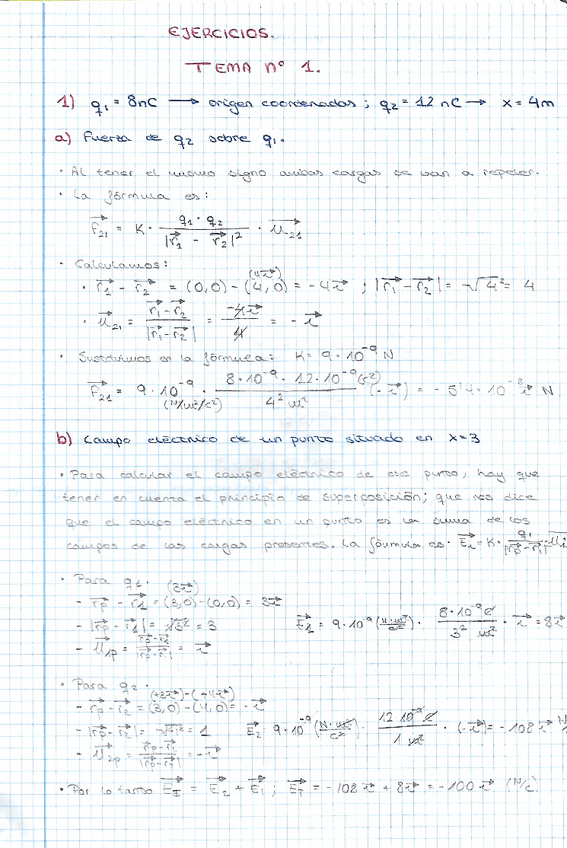 EJERCICIOS.
TEMA nº 1.
1) q₁ = 8nC → origen coordenadas ; q₂ = 12 nC → x = 4m
a) Fuerza de q₂ sobre q₁.
· Al tener el mismo signo ambas cargas se van a repeler.
· La fórmula es:
F⃗₂₁ = K · (q₁ · q₂) / |r⃗₁ - r⃗₂|² · u⃗₂₁
· Calculamos:
· r⃗₁ - r⃗₂ = (0,0) - (4,0) (4i⃗) = -4i⃗ ; |r⃗₁ - r⃗₂| = √4² = 4
· u⃗₂₁ = (r⃗₁ - r⃗₂) / |r⃗₁ - r⃗₂| = -4i⃗ / 4 = - i⃗
· Sustituimos en la fórmula: K = 9 · 10⁻⁹ N
F⃗₂₁ = 9 · 10⁻⁹ (N/m²/c²) · (8 · 10⁻⁹ · 12 · 10⁻⁹ (c²)) / (4² m²) (- i⃗) = - 5'4 · 10⁻⁸ i⃗ N
b) Campo eléctrico de un punto situado en x=3
· Para calcular el campo eléctrico de ese punto, hay que
tener en cuenta el principio de superposición; que nos dice
que el campo eléctrico en un punto es la suma de los
campos de las cargas presentes. La fórmula es · E⃗₁ = K · q₁ / |r⃗p - r⃗₁|
· Para q₁. (3i⃗)
- r⃗p - r⃗₁ = (3,0) - (0,0) = 3i⃗
- |r⃗p - r⃗₁| = √3² = 3 E⃗₁ = 9 · 10⁻⁹ (N·m²/c²) · (8 · 10⁻⁹ c) / (3² m²) · i⃗ = 8i⃗
- u⃗₁p = (r⃗p - r⃗₁) / |r⃗p - r⃗₁| = i⃗
· Para q₂. (+3i⃗) - (+4i⃗)
- r⃗p - r⃗₂ = (3,0) - (4,0) = - i⃗
- |r⃗p - r⃗₂| = = 1 E⃗₂ 9 · 10⁻⁹ (N·m²/c²) · (12 10⁻⁹ c) / (1 m²) · (- i⃗) = - 108 i⃗ N
- u⃗₂p = (r⃗p - r⃗₂) / |r⃗p - r⃗₂| = - i⃗
· Por lo tanto E⃗T = E⃗₂ + E⃗₁ ; E⃗T = - 108 i⃗ + 8 i⃗ = - 100 i⃗ (N/c).